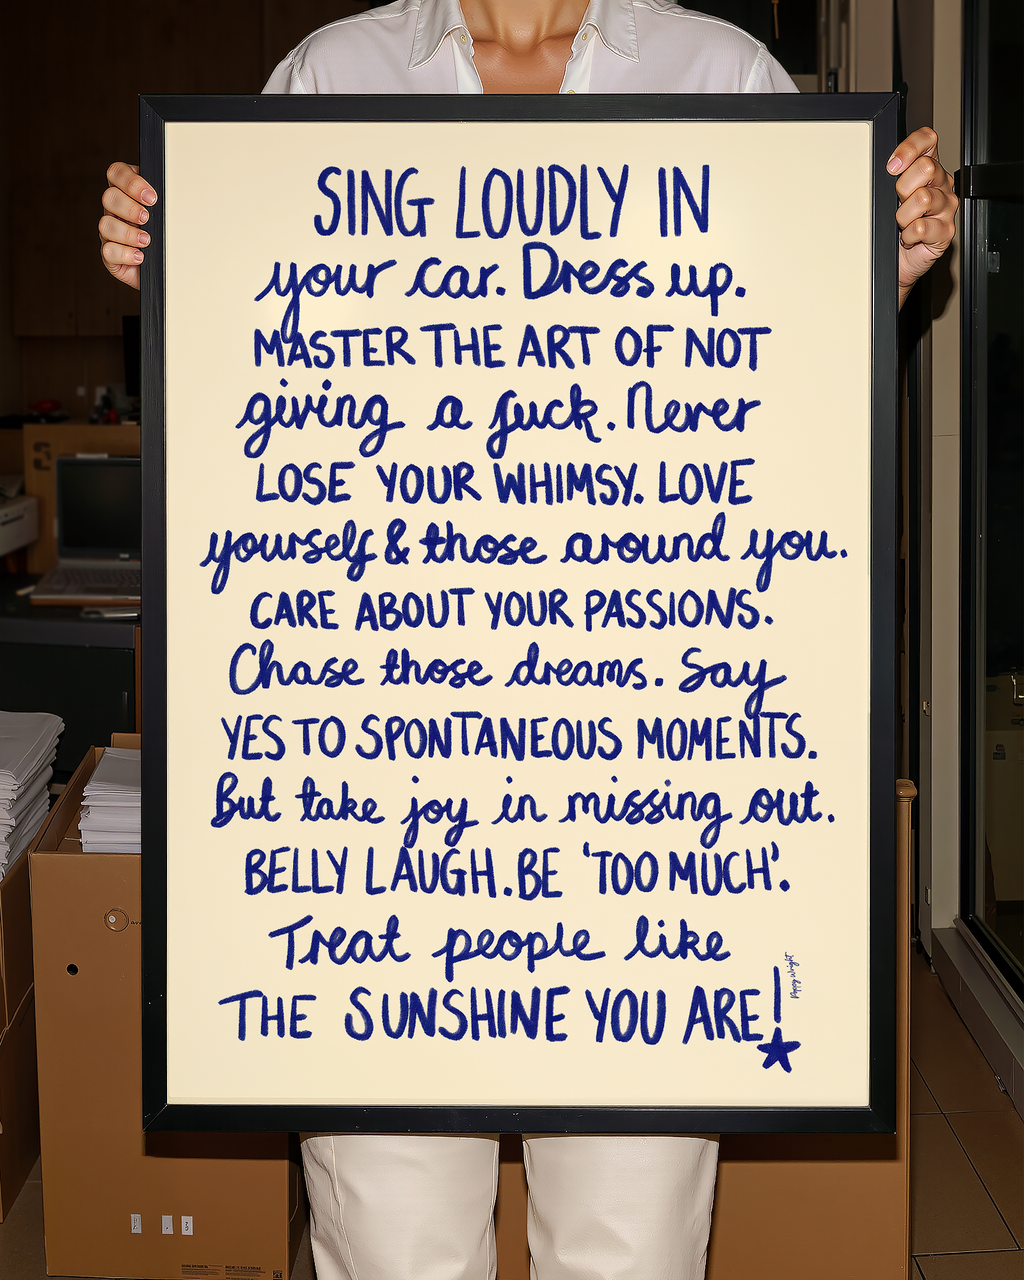 SING LOUDLY IN
your car. Dress up.
MASTER THE ART OF NOT
giving a fuck. Never
LOSE YOUR WHIMSY. LOVE
yourself & those around you.
CARE ABOUT YOUR PASSIONS.
Chase those dreams. Say
YES TO SPONTANEOUS MOMENTS.
But take joy in missing out.
BELLY LAUGH. BE 'TOO MUCH'.
Treat people like
THE SUNSHINE YOU ARE!
Poppy Wright